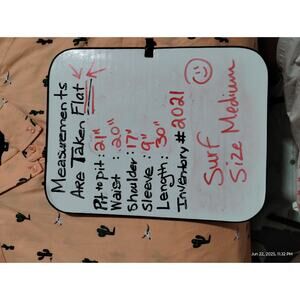 Measurements
Are Taken Flat
Pit to pit: 21"
Waist : 20"
Shoulder: 17"
Sleeve : 9"
Length: 30"
Inventory# 2021
Surf
Size Medium
Jun 22, 2025, 11:32 PM